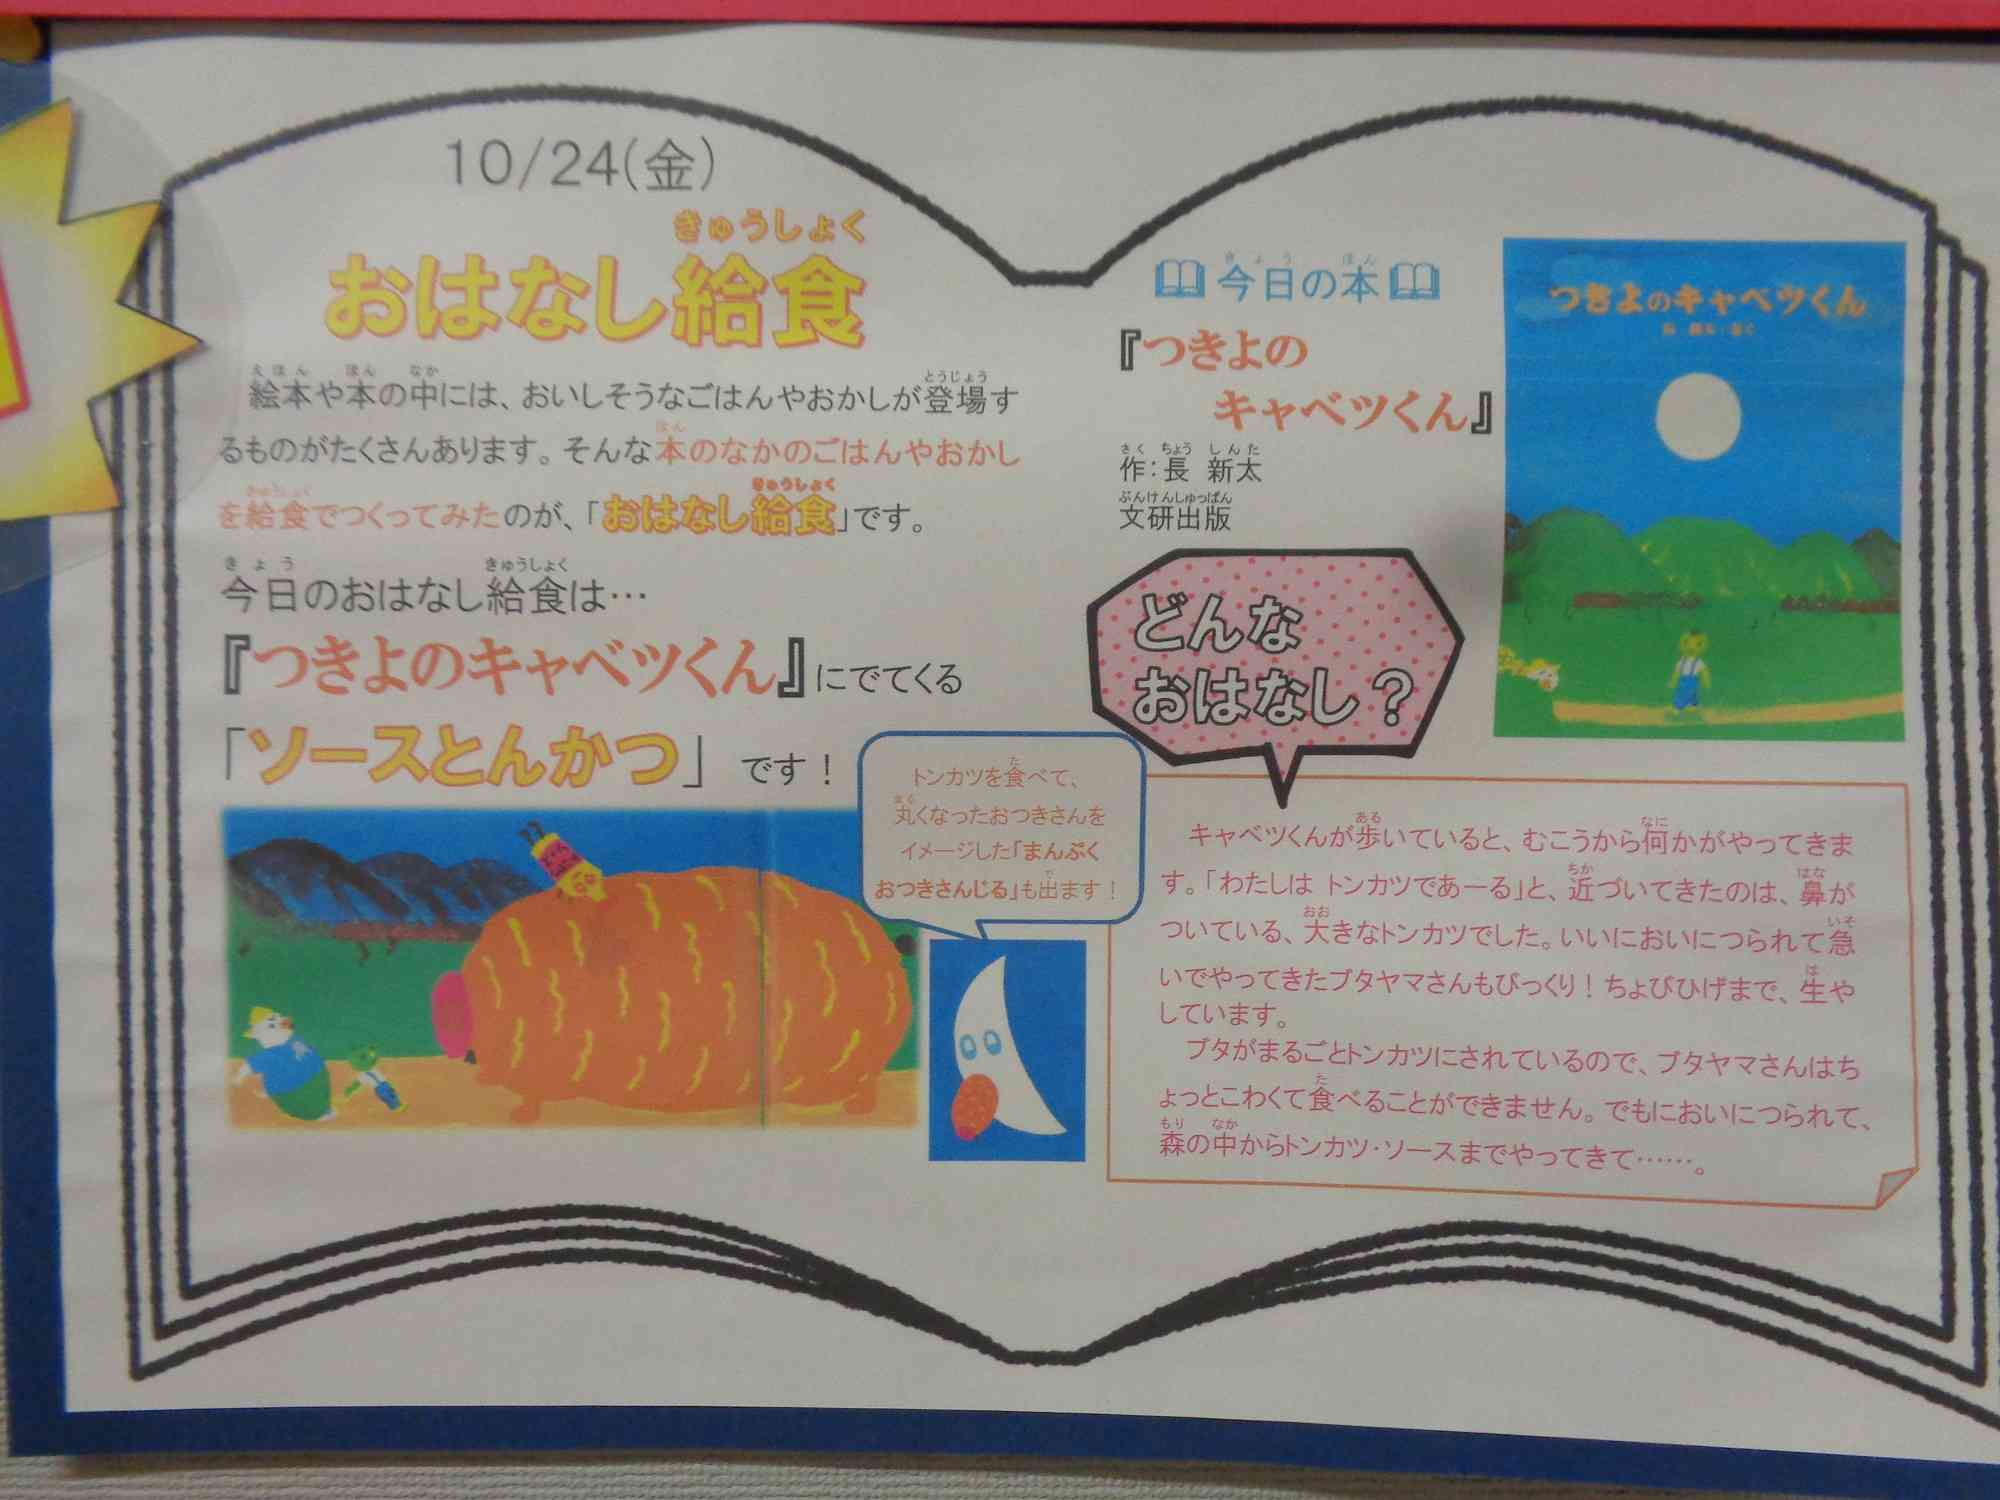 10/24(金)
きゅうしょく
おはなし給食
えほん ほん なか とうじょう
絵本や本の中には、おいしそうなごはんやおかしが登場す
ほん
るものがたくさんあります。そんな本のなかのごはんやおかし
きゅうしょく きゅうしょく
を給食でつくってみたのが、「おはなし給食」です。
きょう きゅうしょく
今日のおはなし給食は…
『つきよのキャベツくん』にでてくる
「ソースとんかつ」です！
た
トンカツを食べて、
まる
丸くなったおつきさんを
イメージした「まんぷく
で
おつきさんじる」も出ます！
きょう ほん
今日の本
『つきよの
キャベツくん』
さく ちょう しんた
作：長 新太
ぶんけんしゅっぱん
文研出版
つきよのキャベツくん
どんな
おはなし？
ある なに
キャベツくんが歩いていると、むこうから何かがやってきま
ちか はな
す。「わたしは トンカツであーる」と、近づいてきたのは、鼻が
おお いそ
ついている、大きなトンカツでした。いいにおいにつられて急
は
いでやってきたブタヤマさんもびっくり！ちょびひげまで、生や
しています。
ブタがまるごとトンカツにされているので、ブタヤマさんはち
た
ょっとこわくて食べることができません。でもにおいにつられて、
もり なか
森の中からトンカツ・ソースまでやってきて……。